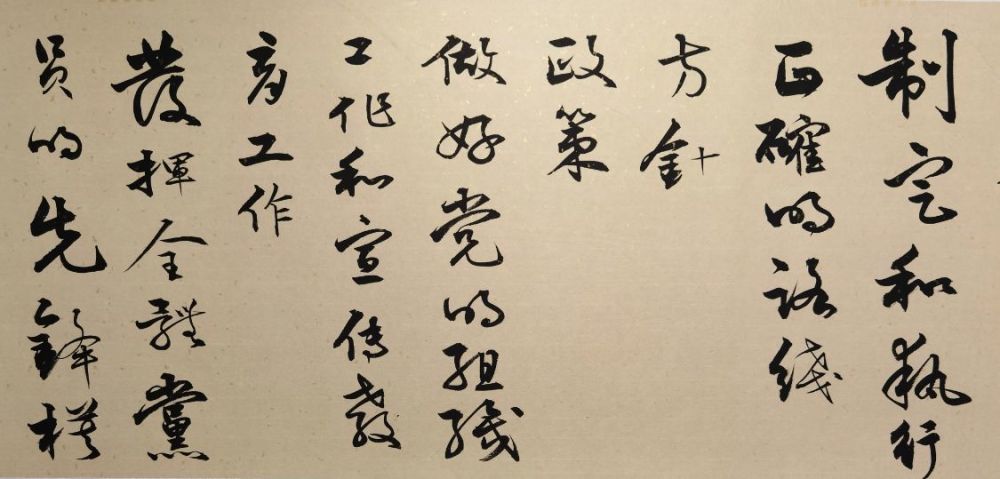 制定和執行
正確的路线
方針
政策
做好党的组織
工作和宣傳教
育工作
發揮全體黨
员的先鋒模